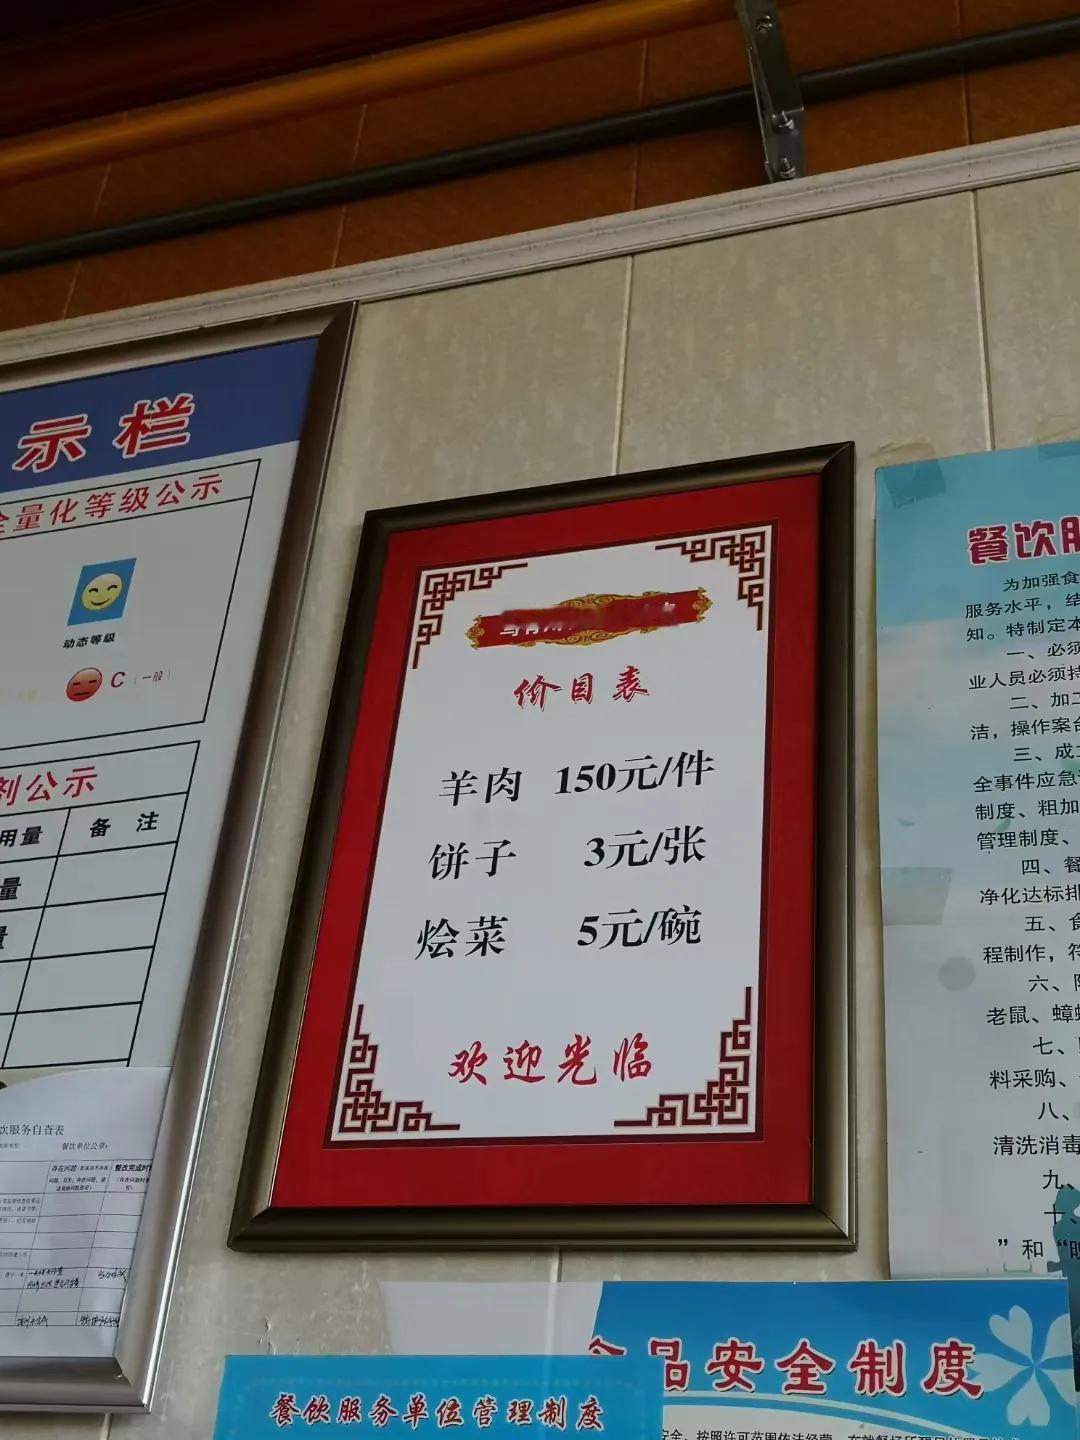 示栏
全量化等级公示
动态等级
C（一般）
剂公示
用量 备注
量
量
饮服务自查表
餐饮单位公章：
存在问题
整改完成时
价目表
羊肉 150元/件
饼子 3元/张
烩菜 5元/碗
欢迎光临
餐饮服
为加强食
服务水平，结
知。特制定本
一、必须
业人员必须持
二、加工
洁，操作案台
三、成立
全事件应急
制度、粗加
管理制度、
四、餐
净化达标排
五、食
程制作，符
六、
老鼠、蟑螂
七、
料采购、
八、
清洗消毒
九、
十、
”和“
食品安全制度
餐饮服务单位管理制度
安全，按照许可范围依法经营，